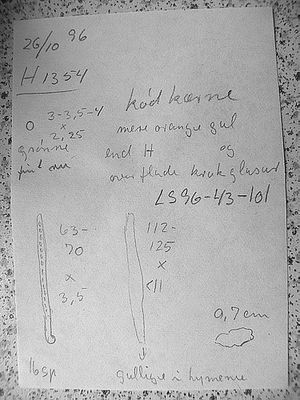 26/10 96
H 1354
3-3,5-4
x
2,25
grønne
kød kærne
mere orange gul
end H og
overflade
LS96-43-101
63-
70
x
3,5
112-
125
x
<11
0,7 cm
16 sp
gullige i hymenie